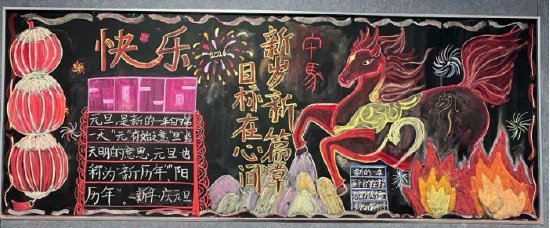 快乐
2026
新岁新篇章
目标在心间
午馬
元旦，是新的一年的开始
一天，"元"有始之意"旦"指
天明的意思，元旦也
称为"新历年""阳
历年"。新年庆元旦
新的一年